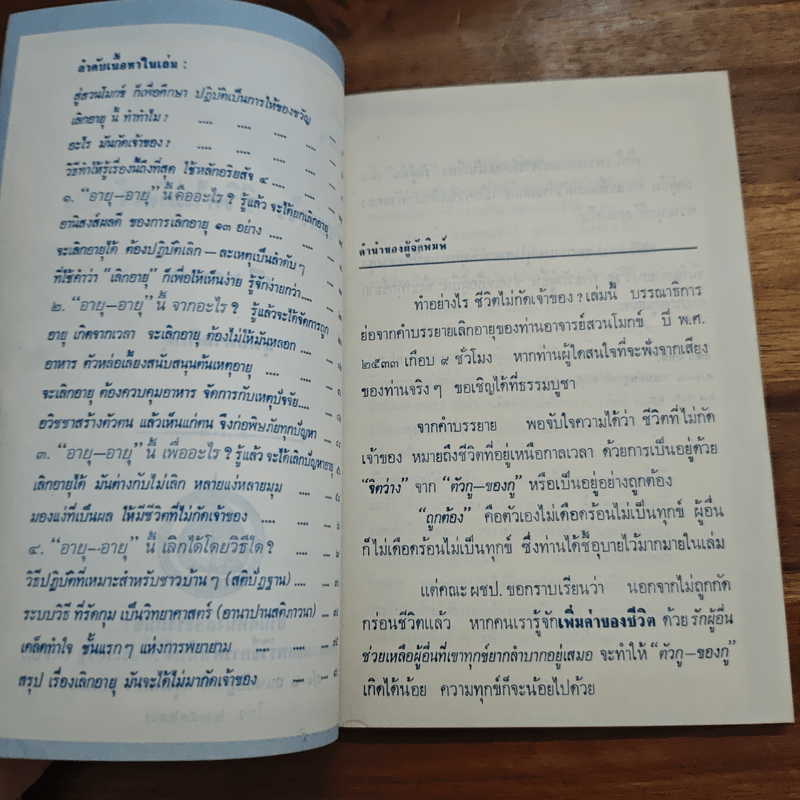 ลำดับเนื้อหาในเล่ม :
สู่สวนโมกข์ ก็เพื่อศึกษา ปฏิบัติเป็นการให้ของขวัญ
เลิกอายุ นี้ ทำทำไม ? .... .... ....
อะไร มันกัดเจ้าของ ? .... .... ....
วิธีทำให้รู้เรื่องนี้ถึงที่สุด ใช้หลักอริยสัจ ๔ ....
๑. “อายุ–อายุ” นี้ คืออะไร ? รู้แล้ว จะได้ยกเลิกอายุ
อานิสงส์ผลดี ของการเลิกอายุ ๑๓ อย่าง ....
จะเลิกอายุได้ ต้องปฏิบัติเลิก – ละเหตุเป็นลำดับๆ
ที่ใช้คำว่า “เลิกอายุ” ก็เพื่อให้เห็นง่าย รู้จักง่ายกว่า....
๒. “อายุ–อายุ” นี้ จากอะไร ? รู้แล้วจะได้จัดการถูก
อายุ เกิดจากเวลา จะเลิกอายุ ต้องไม่ให้มันหลอก ....
อาหาร ตัวหล่อเลี้ยงสนับสนุนต้นเหตุอายุ ....
จะเลิกอายุ ต้องควบคุมอาหาร จัดการกับเหตุปัจจัย....
อวิชชาสร้างตัวตน แล้วเห็นแก่ตน จึงก่อพิษภัยทุกปัญหา
๓. “อายุ–อายุ” นี้ เพื่ออะไร ? รู้แล้ว จะได้เลิกปัญหาอายุ
เลิกอายุได้ มันต่างกับไม่เลิก หลายแง่หลายมุม ....
มองแง่ที่เป็นผล ให้มีชีวิตที่ไม่กัดเจ้าของ .... ....
๔. “อายุ–อายุ” นี้ เลิกได้โดยวิธีใด ?
วิธีปฏิบัติที่เหมาะสำหรับชาวบ้านๆ (สติปัฏฐาน) ....
ระบบวิธี ที่รัดกุม เป็นวิทยาศาสตร์ (อานาปานสติภาวนา)
เคล็ดทำใจ ขั้นแรกๆ แห่งการพยายาม .... ....
สรุป เรื่องเลิกอายุ มันจะได้ไม่มากัดเจ้าของ ....
คำนำของผู้จัดพิมพ์
ทำอย่างไร ชีวิตไม่กัดเจ้าของ ? เล่มนี้ บรรณาธิการ
ย่อจากคำบรรยายเลิกอายุของท่านอาจารย์สวนโมกข์ ปี พ.ศ.
๒๕๓๓ เกือบ ๙ ชั่วโมง หากท่านผู้ใดสนใจที่จะฟังจากเสียง
ของท่านจริงๆ ขอเชิญได้ที่ธรรมบูชา
จากคำบรรยาย พอจับใจความได้ว่า ชีวิตที่ไม่กัด
เจ้าของ หมายถึงชีวิตที่อยู่เหนือกาลเวลา ด้วยการเป็นอยู่ด้วย
“จิตว่าง” จาก “ตัวกู–ของกู” หรือเป็นอยู่อย่างถูกต้อง
“ถูกต้อง” คือตัวเองไม่เดือดร้อนไม่เป็นทุกข์ ผู้อื่น
ก็ไม่เดือดร้อนไม่เป็นทุกข์ ซึ่งท่านได้ชี้อุบายไว้มากมายในเล่ม
แต่คณะ ผชป. ขอกราบเรียนว่า นอกจากไม่ถูกกัด
กร่อนชีวิตแล้ว หากคนเรารู้จักเพิ่มค่าของชีวิต ด้วย รักผู้อื่น
ช่วยเหลือผู้อื่นที่เขาทุกข์ยากลำบากอยู่เสมอ จะทำให้ “ตัวกู–ของกู”
เกิดได้น้อย ความทุกข์ก็จะน้อยไปด้วย